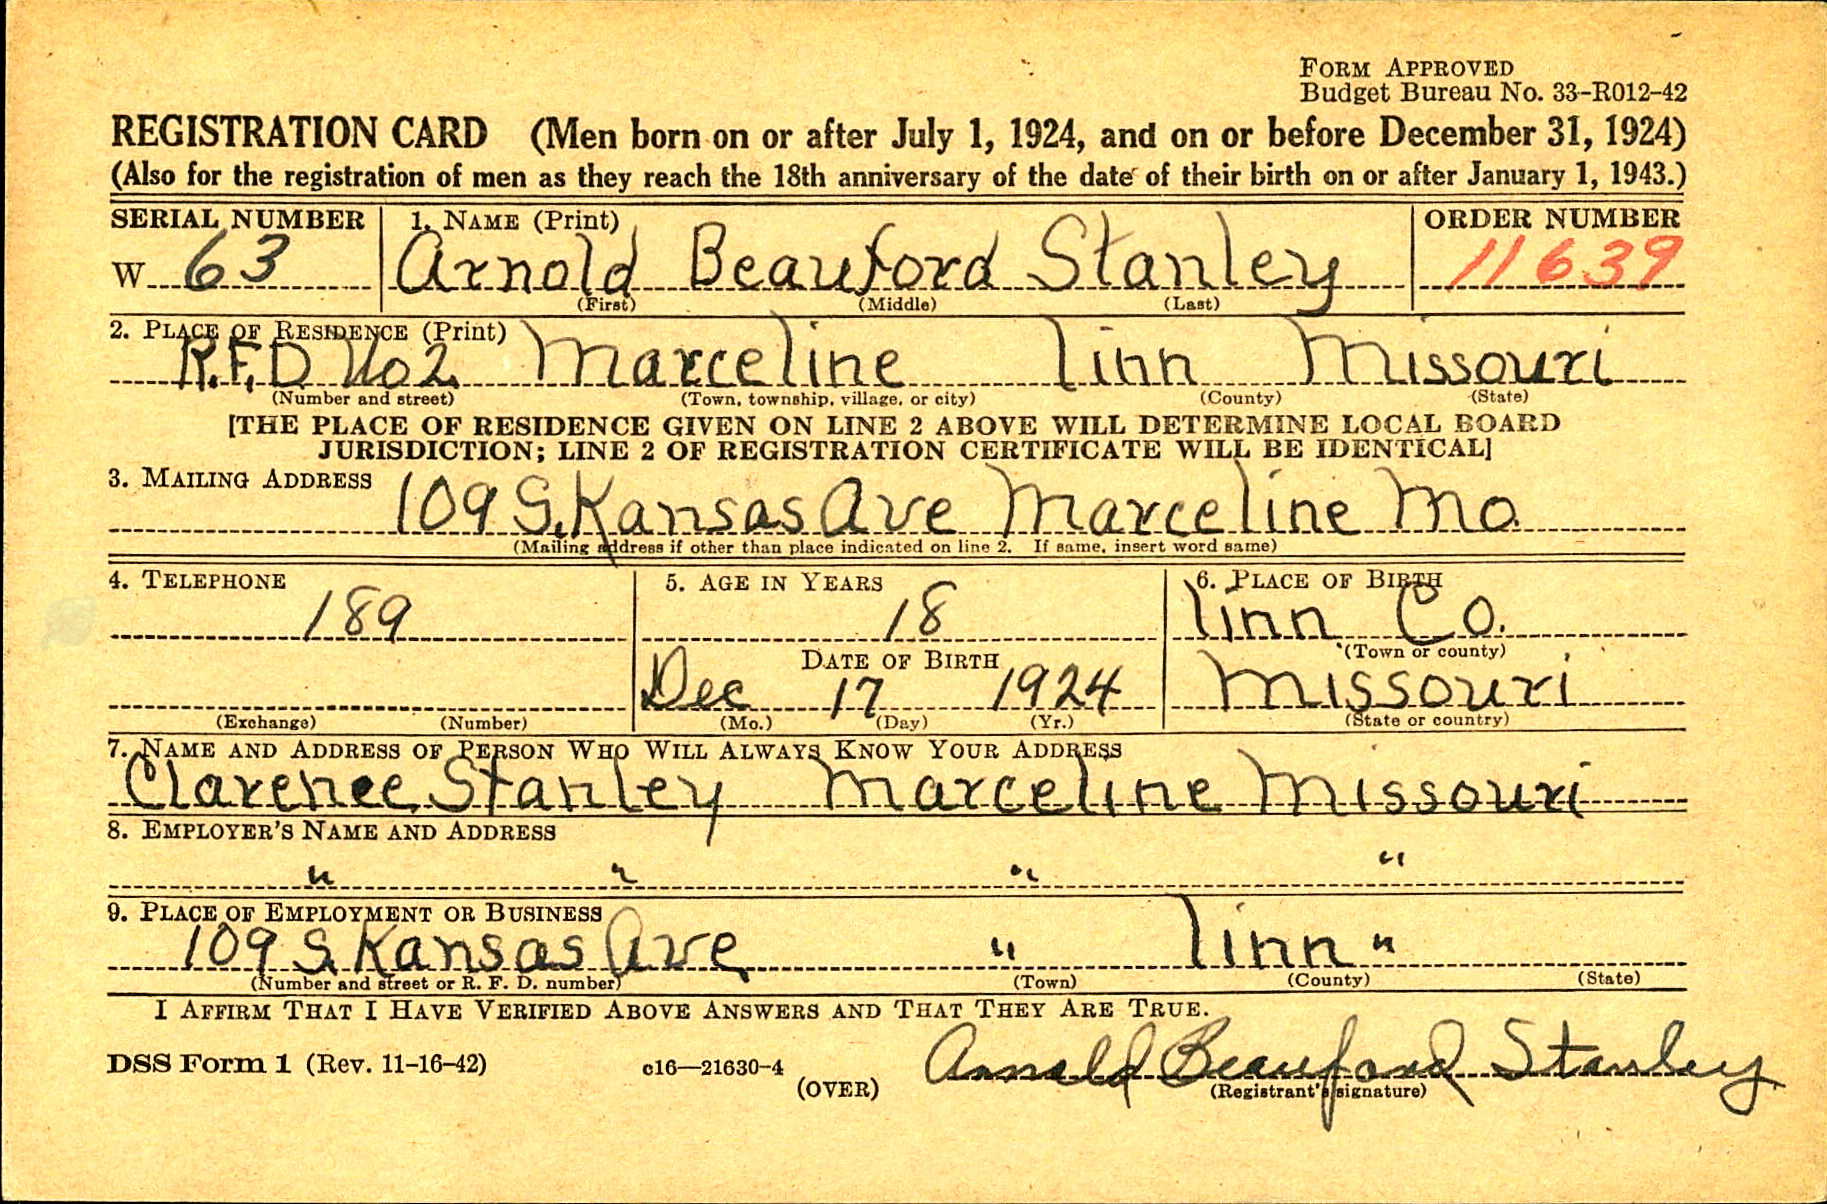 FORM APPROVED
Budget Bureau No. 33-R012-42
REGISTRATION CARD (Men born on or after July 1, 1924, and on or before December 31, 1924)
(Also for the registration of men as they reach the 18th anniversary of the date of their birth on or after January 1, 1943.)
SERIAL NUMBER 1. NAME (Print) ORDER NUMBER
W 63 Arnold Beauford Stanley 11639
(First) (Middle) (Last)
2. PLACE OF RESIDENCE (Print)
R.F.D No 2. Marceline Linn Missouri
(Number and street) (Town, township, village, or city) (County) (State)
[THE PLACE OF RESIDENCE GIVEN ON LINE 2 ABOVE WILL DETERMINE LOCAL BOARD
JURISDICTION; LINE 2 OF REGISTRATION CERTIFICATE WILL BE IDENTICAL]
3. MAILING ADDRESS
109 S. Kansas Ave Marceline Mo.
(Mailing address if other than place indicated on line 2. If same, insert word same)
4. TELEPHONE 5. AGE IN YEARS 6. PLACE OF BIRTH
189 18 Linn Co.
DATE OF BIRTH (Town or county)
Dec 17 1924 Missouri
(Exchange) (Number) (Mo.) (Day) (Yr.) (State or country)
7. NAME AND ADDRESS OF PERSON WHO WILL ALWAYS KNOW YOUR ADDRESS
Clarence Stanley Marceline Missouri
8. EMPLOYER'S NAME AND ADDRESS
" " " "
9. PLACE OF EMPLOYMENT OR BUSINESS
109 S. Kansas Ave " Linn "
(Number and street or R. F. D. number) (Town) (County) (State)
I AFFIRM THAT I HAVE VERIFIED ABOVE ANSWERS AND THAT THEY ARE TRUE.
DSS Form 1 (Rev. 11-16-42) c16—21630-4 Arnold Beauford Stanley
(OVER) (Registrant's signature)